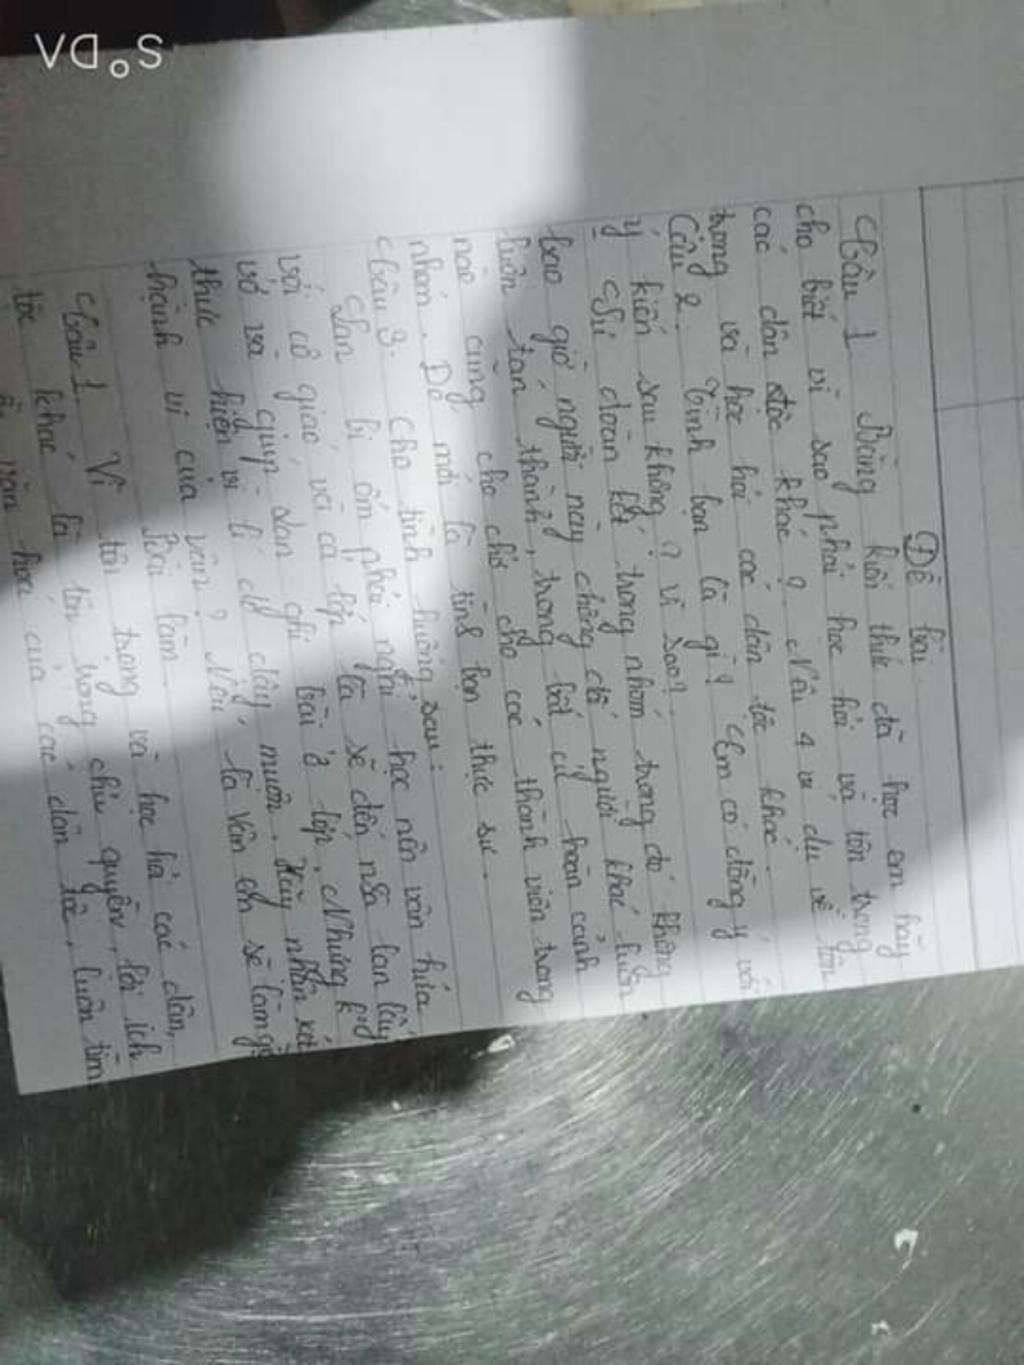 VD.S
Đề bài
Câu 1 Bằng kiến thức đã học em hãy
cho biết vì sao phải học hỏi và tôn trọng
các dân tộc khác? Nêu 4 ví dụ về tôn
trọng và học hỏi các dân tộc khác.
Câu 2. Tình bạn là gì? Em có đồng ý với
ý kiến sau không? Vì sao?
Sự đoàn kết trong nhóm trong đó không
bao giờ người này chống đối người khác luôn
luôn tán thành, trong bất cứ hoàn cảnh
nào cũng che chở cho các thành viên trong
nhóm. Đó mới là tình bạn thực sự.
Câu 3. Cho tình huống sau:
Lan bị ốm phải nghỉ học nên vân hứa
với cô giáo và cả lớp là sẽ đến nhà lan lấy
vở và giúp Lan ghi bài ở lớp. Nhưng k° t°
thực hiện vì lí do dậy muộn. Hãy nhận xét
hành vi của vân? Nếu là Vân em sẽ làm gì
Bài làm
Câu 1 Vì tôn trọng và học hỏi các dân
tộc khác là tôn trọng chủ quyền, lợi ích
văn hoá của các dân tộc, luôn tìm